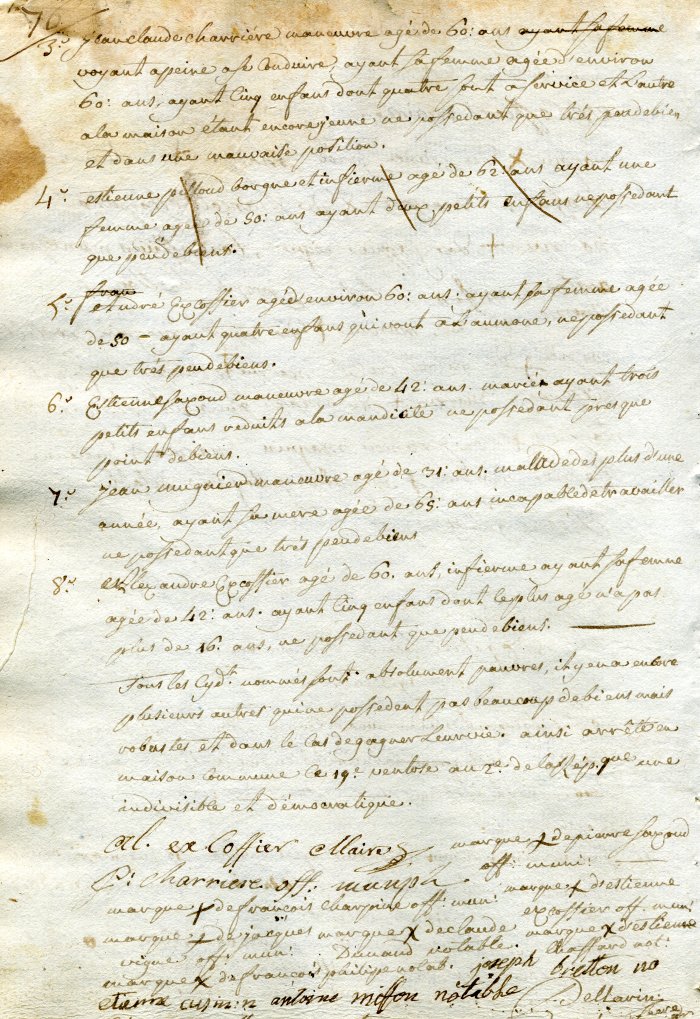 76
3.° jean claude charriére manœuvre agé de 60: ans ayant sa femme
voyant apeine a se Conduire, ayant sa femme agée d'environ
60: ans, ayant Cinq enfans dont quatre sont a service et L'autre
a la maison étant encore jeune ne possedant que trés peu de bien
et dans une mauvaise position.
4.° estienne pilloud borgne et infierme agé de 62: ans ayant une
femme agée de 50: ans ayant deux petits enfans ne possedant
que peu de biens.
fran
5.° et André Excoffier aged'environ 60: ans: ayant sa femme agée
de 50 - ayant quatre enfans qui vont à L'aumone, ne possedant
que trés peu de biens.
6.° Estienne saxoud maneuvre agé de 42: ans. mariér ayant trois
petits enfans reduits a la mandicité ne possédant presque
point debiens.
7.° jean mugnier manœuvre agé de 31: ans. malade des plus d'une
année, ayant sa mere agée de 65: ans incapable de travailler
ne possedant que trés peu de biens
8.° Alexandre Excoffier agé de 60. ans, infierme ayant sa femme
agée de 42: ans. ayant Cinq enfans dont le plus agé n'a pas
plus de 16. ans, ne possedant que peu de biens.
Tous les Cyd.t nommés sont absolument pauvres, il y en a encore
plusieurs autres qui ne possedent pas beaucoup de biens mais
robustes et dans le Cas de gagner Leur vie. ainsi arrêté en
maison commune Ce 19.e ventose an 2.e de la Rép.que une
indivisible et démocratique.
al. exCoffier Maire
marque + de pierre saxoud
off: muni:
charriere off: munip
marque + d'estienne
excoffier off: mun:
marque + de françois charpine off: mun:
marque + de jacques marque x de claude marque x d'estienne
vigne off: mun: Dunand notable Chaffard not:
marque x de françois philipe notab. joseph bretton no
etienne cusin n antoine miffon notable Dellavin